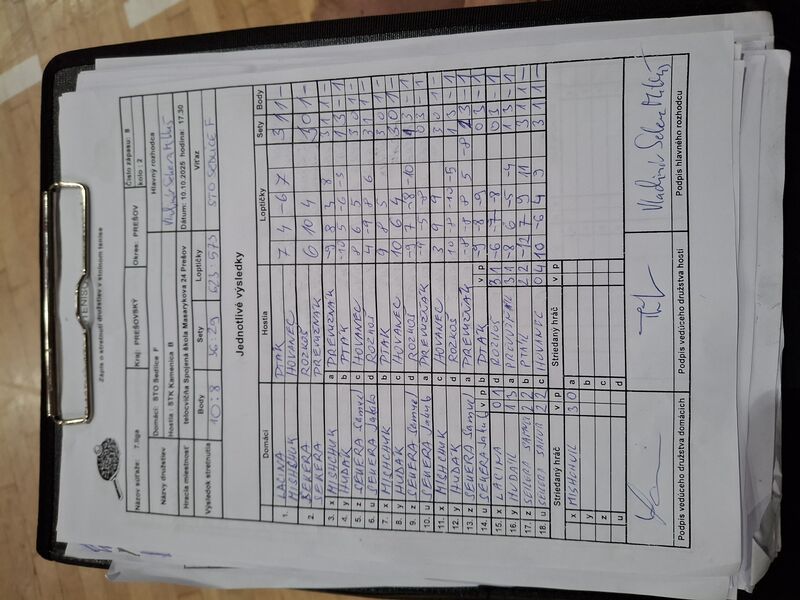 Zápis o stretnutí družstiev v stolnom tenise
Názov súťaže: 7.liga Kraj: PREŠOVSKÝ Okres: PREŠOV Číslo zápasu: 8
kolo: 2
Názvy družstiev Domáci: STO Sedlice F Hlavný rozhodca
Hostia: STK Kamenica B
Hracia miestnosť telocvičňa Spojená škola Masarykova 24 Prešov Dátum: 10.10.2025 hodina: 17.30
Výsledok stretnutia Body Sety Loptičky Víťaz
10:8 36:29 623:573 STO SEDLICE F
Jednotlivé výsledky
Domáci Hostia Loptičky Sety Body
1. LACINA PTAK 7 4 -6 7 3 1 1 -
MISHCHUK HOVANEC
2. SEVERA ROZKOŠ 6 10 4 3 0 1 -
SEVERA PREVUZNAK
3. x MISHCHUK a PREVUZNAK -9 8 3 8 3 1 1 -
4. y HUDAK b PTAK -10 5 -6 -3 1 3 - 1
5. z SEVERA Samuel c HOVANEC 8 6 5 3 0 1 -
6. u SEVERA Jakub d ROZKOŠ 4 -9 8 6 3 1 1 -
7. x MISHCHUK b PTAK 9 8 5 3 0 1 -
8. y HUDAK c HOVANEC 10 6 4 3 0 1 -
9. z SEVERA Samuel d ROZKOŠ -9 7 -8 -10 1 3 - 1
10. u SEVERA Jakub a PREVUZNAK -9 -5 -8 0 3 - 1
11. x MISHCHUK c HOVANEC 3 9 9 3 0 1 -
12. y HUDAK d ROZKOŠ 10 -8 -10 -5 1 3 - 1
13. z SEVERA Samuel a PREVUZNAK -8 -8 8 5 -8 2 3 - 1
14. u SEVERA Jakub v p b PTAK v p -9 -8 -9 0 3 - 1
15. x LACINA 0 1 d ROZKOŠ 3 1 -6 -7 -8 0 3 - 1
16. y HUDAK 1 3 a 3 1 -8 6 -5 -4 1 3 - 1
17. z SEVERA SAMUEL 2 2 b PTAK 2 2 -12 7 9 11 3 1 1 -
18. u SEVERA 2 2 c HOVANEC 0 4 10 -6 4 9 3 1 1 -
Striedaný hráč v p Striedaný hráč v p
x 3 0 a
y b
z c
u d
Podpis vedúceho družstva domácich Podpis vedúceho družstva hostí Podpis hlavného rozhodcu